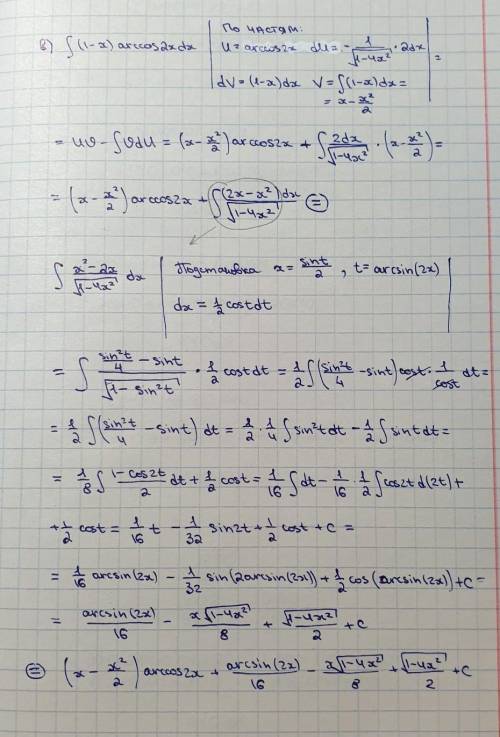 в) ∫(1-x) arccos2xdx | По частям:
u = arccos2x du = -1/√(1-4x²) · 2dx
dv = (1-x)dx v = ∫(1-x)dx =
= x - x²/2 | =
= uv - ∫vdu = (x - x²/2) arccos2x + ∫ 2dx/√(1-4x²) · (x - x²/2) =
= (x - x²/2) arccos2x + ∫ (2x-x²)dx/√(1-4x²) ⊜
∫ (x²-2x)/√(1-4x²) dx | Подстановка x = sint/2, t = arcsin(2x)
dx = 1/2 costdt
= ∫ (sin²t/4 - sint)/√(1-sin²t) · 1/2 costdt = 1/2 ∫(sin²t/4 - sint) cost · 1/cost dt =
= 1/2 ∫(sin²t/4 - sint) dt = 1/2 · 1/4 ∫sin²tdt - 1/2 ∫sintdt =
= 1/8 ∫ (1-cos2t)/2 dt + 1/2 cost = 1/16 ∫dt - 1/16 · 1/2 ∫cos2t d(2t) +
+ 1/2 cost = 1/16 t - 1/32 sin2t + 1/2 cost + C =
= 1/16 arcsin(2x) - 1/32 sin(2arcsin(2x)) + 1/2 cos(arcsin(2x)) + C =
= arcsin(2x)/16 - x√(1-4x²)/8 + √(1-4x²)/2 + C
⊜ (x - x²/2) arccos2x + arcsin(2x)/16 - x√(1-4x²)/8 + √(1-4x²)/2 + C